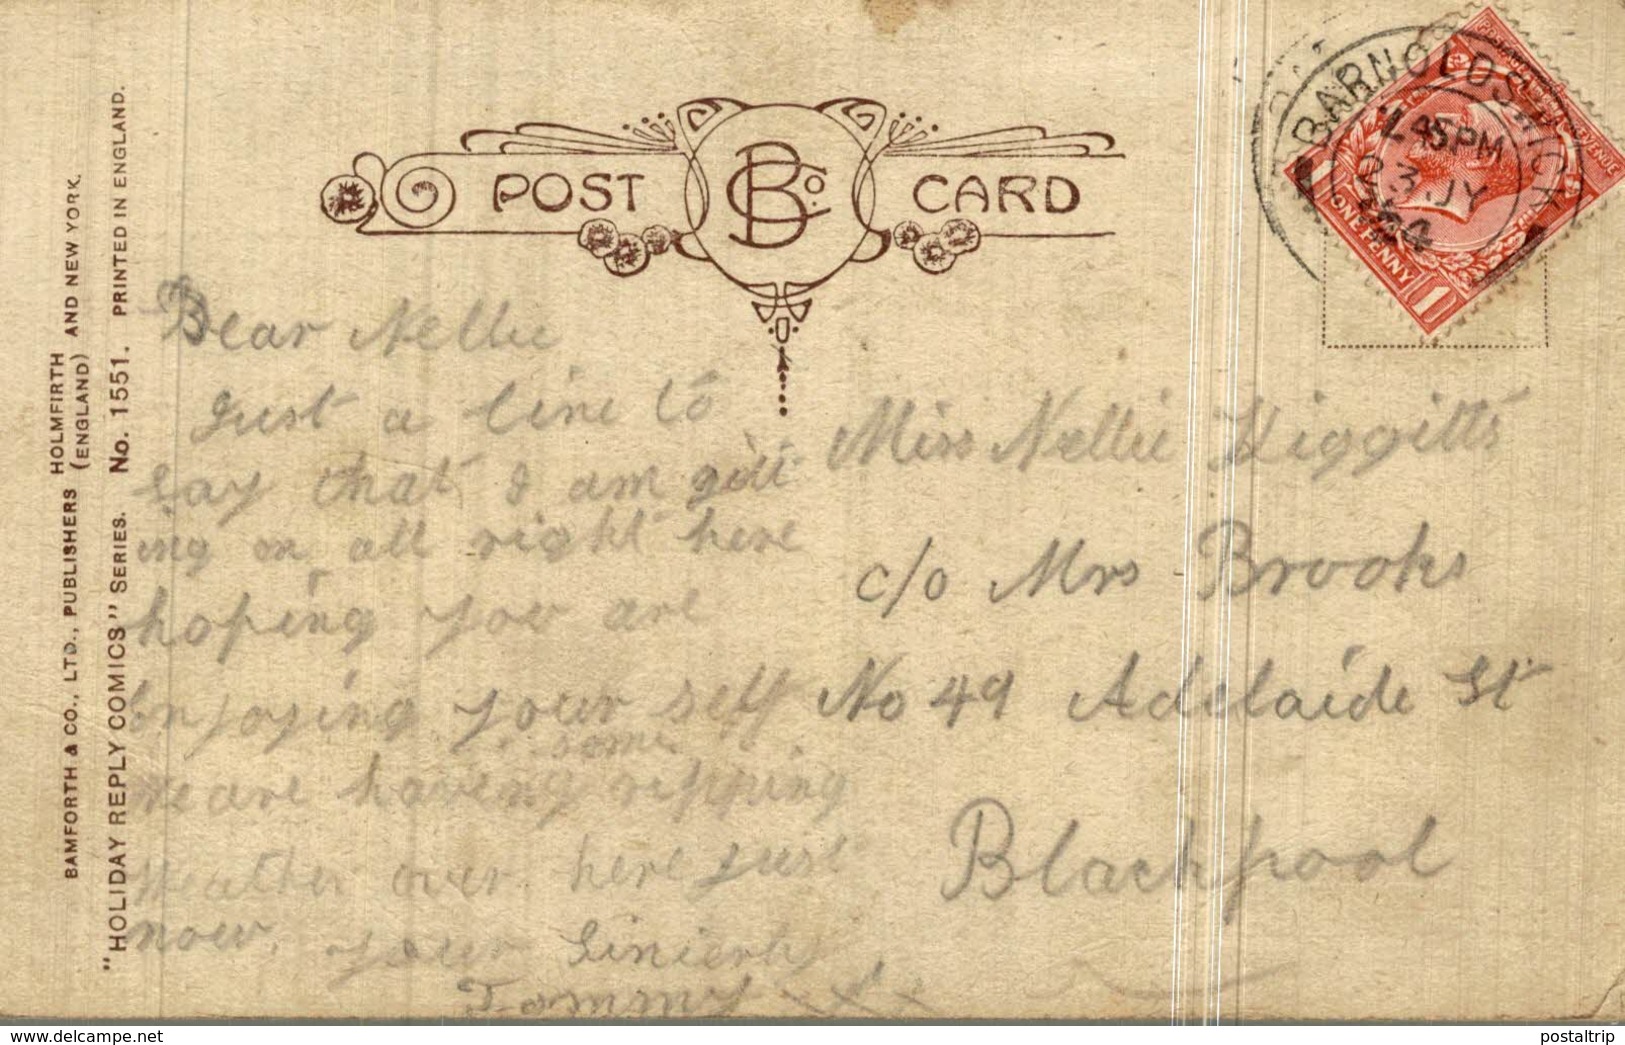 BAMFORTH & CO., LTD., PUBLISHERS HOLMFIRTH (ENGLAND) AND NEW YORK.
"HOLIDAY REPLY COMICS" SERIES. No. 1551. PRINTED IN ENGLAND.
POST CARD
BCo.
BARNOLDSWICK
45PM
3 JY
24
POSTAGE REVENUE
ONE PENNY
1 1
Dear Nellie
Just a line to
say that I am gett
ing on all right here
hoping you are
Enjoying your self
some
We are having ripping
Weather over here just
now. your Sincerly
Tommy x x x
Miss Nellie Higgitts
c/o Mrs Brooks
No 49 Adelaide St
Blackpool
© postaltrip.com
postaltrip